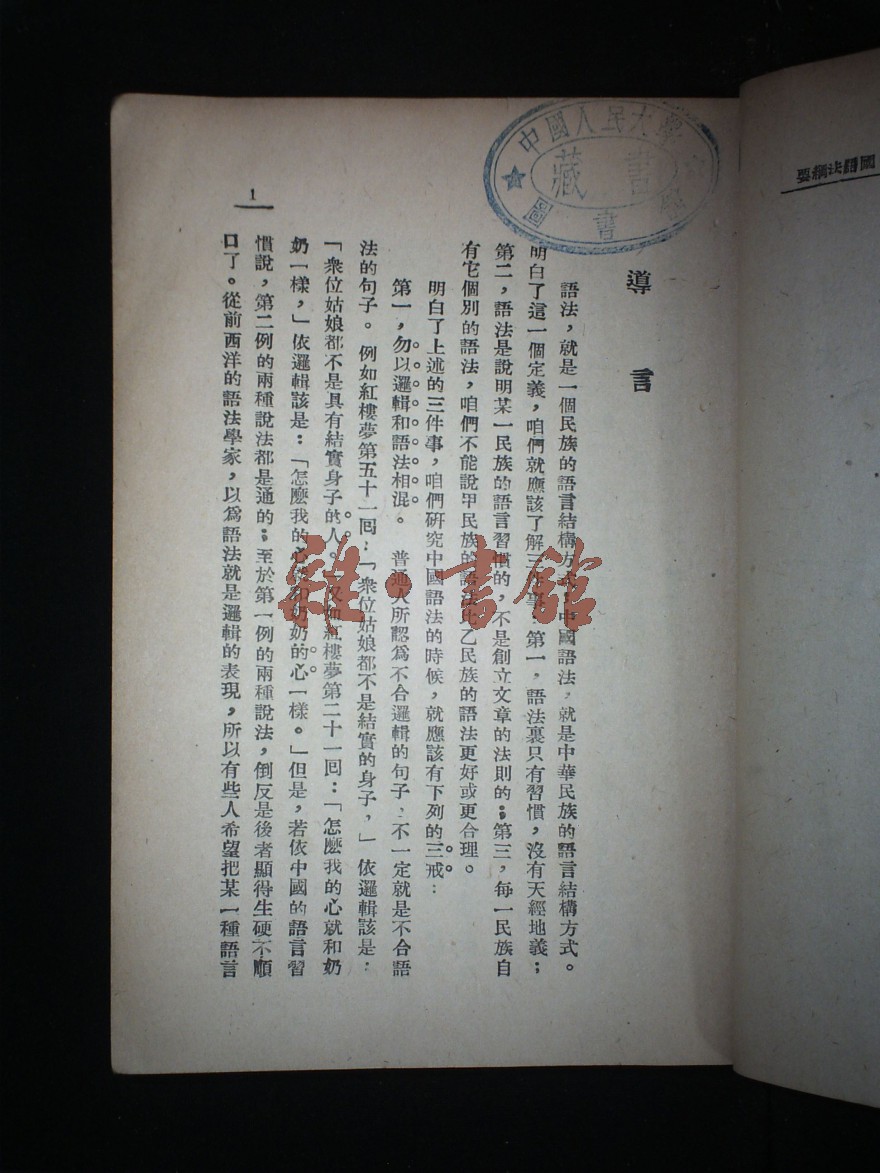 國語法綱要
中國人民大學
藏書
圖書
導言
語法，就是一個民族的語言結構方式。中國語法，就是中華民族的語言結構方式。
明白了這一個定義，咱們就應該了解三件事：第一，語法裏只有習慣，沒有天經地義；
第二，語法是說明某一民族的語言習慣的，不是創立文章的法則的；第三，每一民族自
有它個別的語法，咱們不能說甲民族的語法比乙民族的語法更好或更合理。
明白了上述的三件事，咱們研究中國語法的時候，就應該有下列的三戒：
第一，勿以邏輯和語法相混。　普通人所認爲不合邏輯的句子，不一定就是不合語
法的句子。例如紅樓夢第五十一回：「衆位姑娘都不是結實的身子，」依邏輯該是：
「衆位姑娘都不是具有結實身子的人。」又如紅樓夢第二十一回：「怎麼我的心就和奶
奶一樣，」依邏輯該是：「怎麼我的心就和奶奶的心一樣。」但是，若依中國的語言習
慣說，第二例的兩種說法都是通的；至於第一例的兩種說法，倒反是後者顯得生硬不順
口了。從前西洋的語法學家，以爲語法就是邏輯的表現，所以有些人希望把某一種語言
1
雜·書館